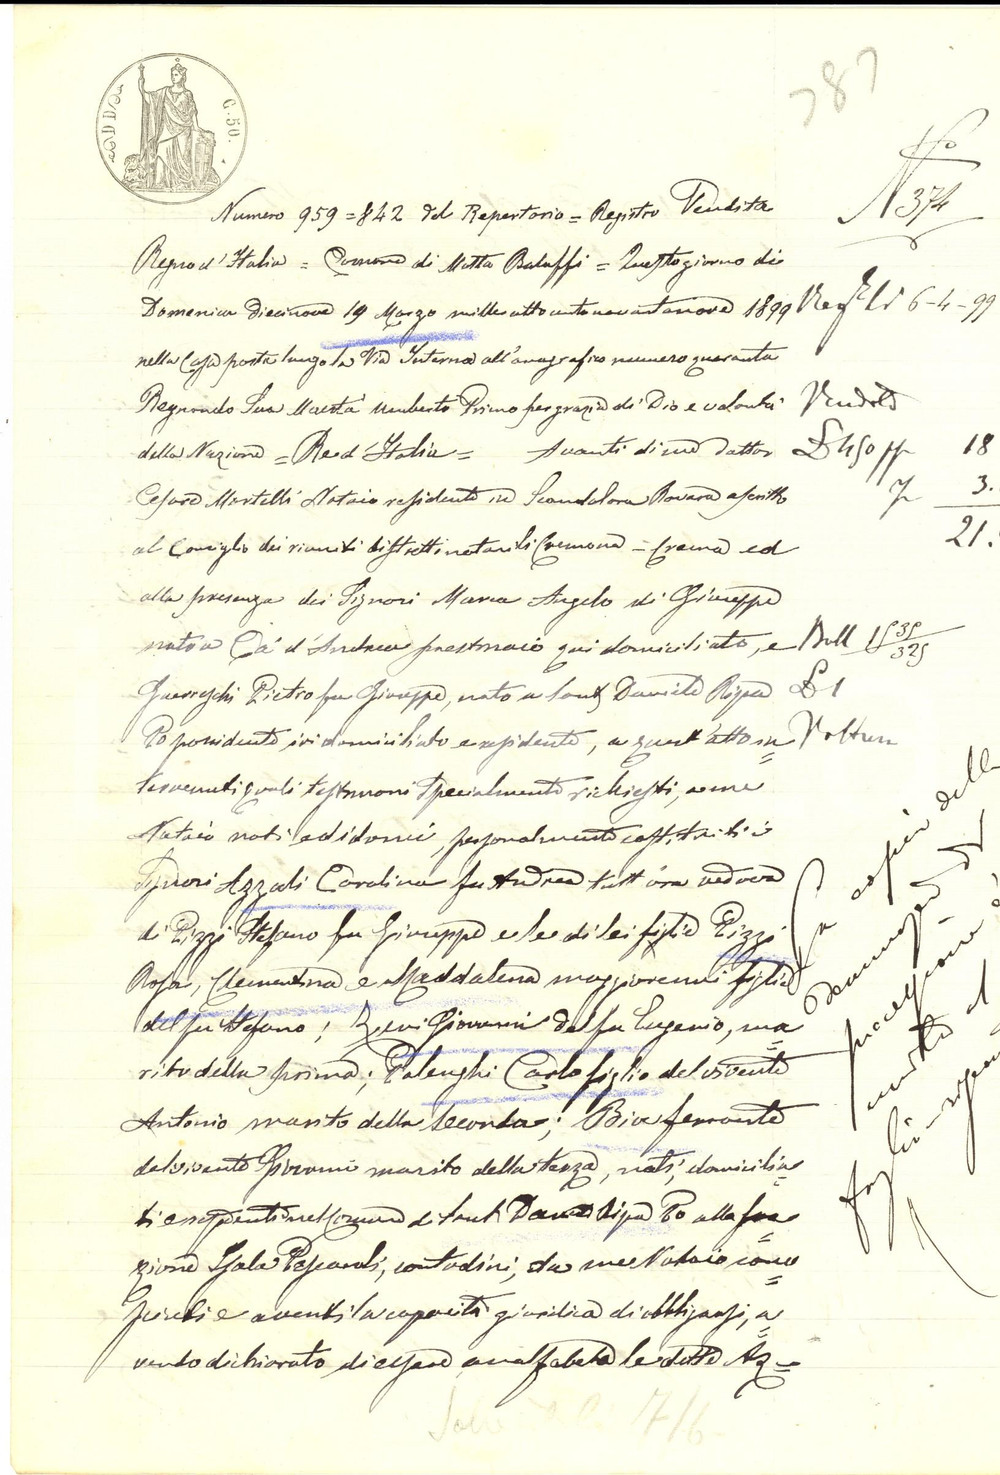 787
C. 50.
No
N 374
Numero 959 = 842 del Repertorio = Registro Vendita
Regno d'Italia = Comune di Motta Baluffi = Quest'oggi giorno di
Domenica diecinove 19 Marzo mille ottocentonovantanove 1899
Regto li 6-4-99
nella Casa posta lungo la Via Interna all'anagrafico numero quaranta
Regnando Sua Maestà Umberto Primo per grazia di Dio e volontà
Vendita
della Nazione = Re d'Italia = Avanti di me dottor
18
Cesare Martelli Notaio residente in Scandolara Ravara ascritto
3.
al Consiglio dei riuniti distretti notarili Cremona - Crema ed
21.
alla presenza dei Signori Marca Angelo di Giuseppe
nato a Cà d'Andrea prestinaio qui domiciliato, e
Boll
Guereschi Pietro fu Giuseppe, nato a Santo Daniele Ripa
L 1
Po possidente ivi domiciliato e residente, a quest'atto in
Volture
tervenuti quali testimoni specialmente richiesti, a me
Notaio noti ed idonei, personalmente costituiti i
Signori Azzali Carolina fu Andrea tutt'ora vedova
di Pizzi Stefano fu Giuseppe e le di lei figlie Pizzi
Rosa, Clementina e Maddalena maggiorenni figlie
del fu Stefano; Zevi Giovanni del fu Eugenio, ma
rito della prima; Palenghi Carlo figlio del vivente
Antonio marito della seconda; Bia ferrante
del vivente Giovanni marito della terza, nati, domicilia
ti e residenti nel Comune di Santo Daniele Ripa Po alla fra
zione Isola Pescaroli, contadini, da me Notaio cono
sciuti e aventi la capacità giuridica di obbligarsi, a
vendo dichiarato di essere analfabeta le dette Az
Fa copia della
foglio
7/6